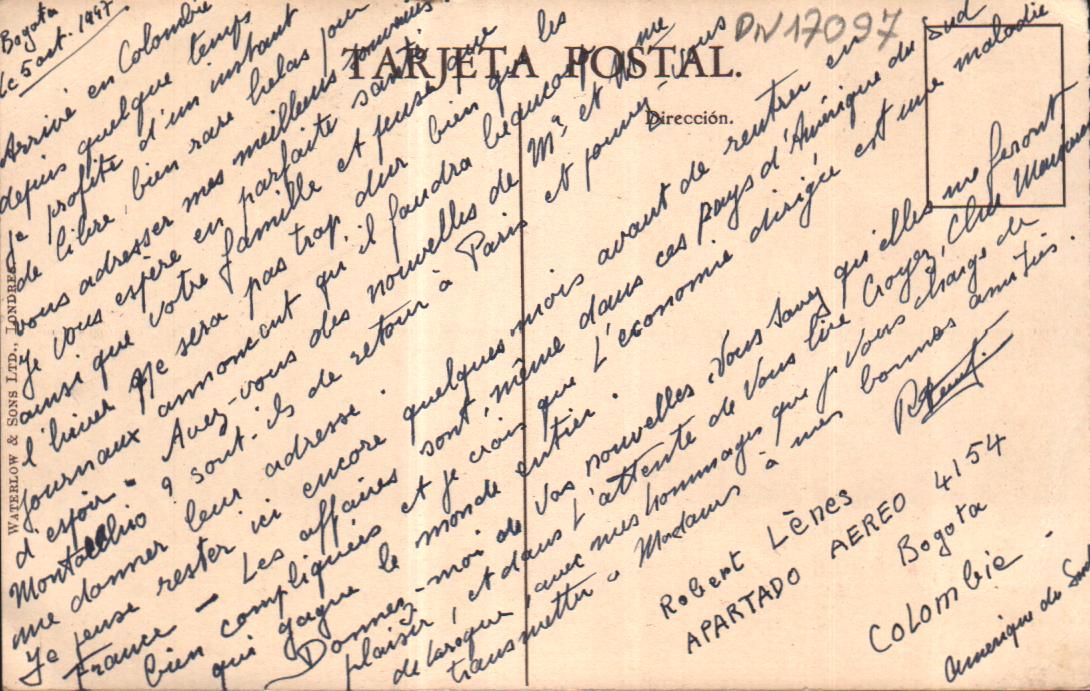 Bogota
Le 5 oct. 1947
Arrivé en Colombie
depuis quelque temps
je profite d'un instant
de libre, bien rare helas pour
vous adresser mes meilleurs
Je vous espère en parfaite santé
ainsi que votre famille et pense que
l'hiver ne sera pas trop dur bien que les
journaux annoncent qu'il faudra beaucoup
d'espoir. Avez-vous des nouvelles de Mr et Mme
Montacchio ? sont-ils de retour à Paris et pouvez-vous
me donner leur adresse.
Je pense rester ici encore quelques mois avant de rentrer en
France - Les affaires sont, même dans ces pays d'Amérique du Sud
bien compliquées et je crois que l'économie dirigée est une maladie
qui gagne le monde entier.
Donnez-moi de vos nouvelles, vous savez qu'elles me feront
plaisir, et dans l'attente de vous lire Croyez, Cher Monsieur
de Laroque, avec mes hommages que je vous charge de
transmettre à Madame à mes bonnes amitiés.
TARJETA POSTAL.
Dirección.
DIV17097
WATERLOW & SONS LTD., LONDRES
Robert LÈNES
APARTADO AEREO 4154
Bogota
Colombie -
Amerique du Sud